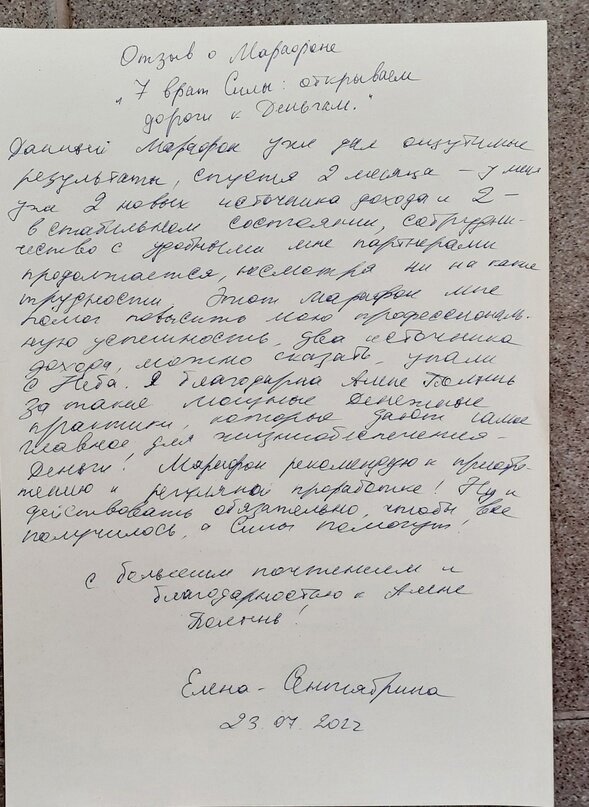 Отзыв о Марафоне
"7 врат Силы: открываем
дороги к Деньгам."
Данный Марафон уже дал ощутимые
результаты, спустя 2 месяца – у меня
уже 2 новых источника дохода и 2 –
в стабильном состоянии, сотрудни-
чество с удобными мне партнерами
продолжается, несмотря ни на какие
трудности. Этот Марафон мне
помог повысить мою профессиональ-
ную успешность, два источника
дохода, можно сказать, упали
с Неба. Я благодарна Алне Полынь
за такие мощные Денежные
практики, которые дают самое
главное для жизнеобеспечения –
Деньги! Марафон рекомендую к приобре-
тению и регулярной проработке! Ну и
действовать обязательно, чтобы все
получилось, а Силы помогут!
С большим почтением и
благодарностью к Алне
Полынь!
Елена - Сентябрина
23.07.2022